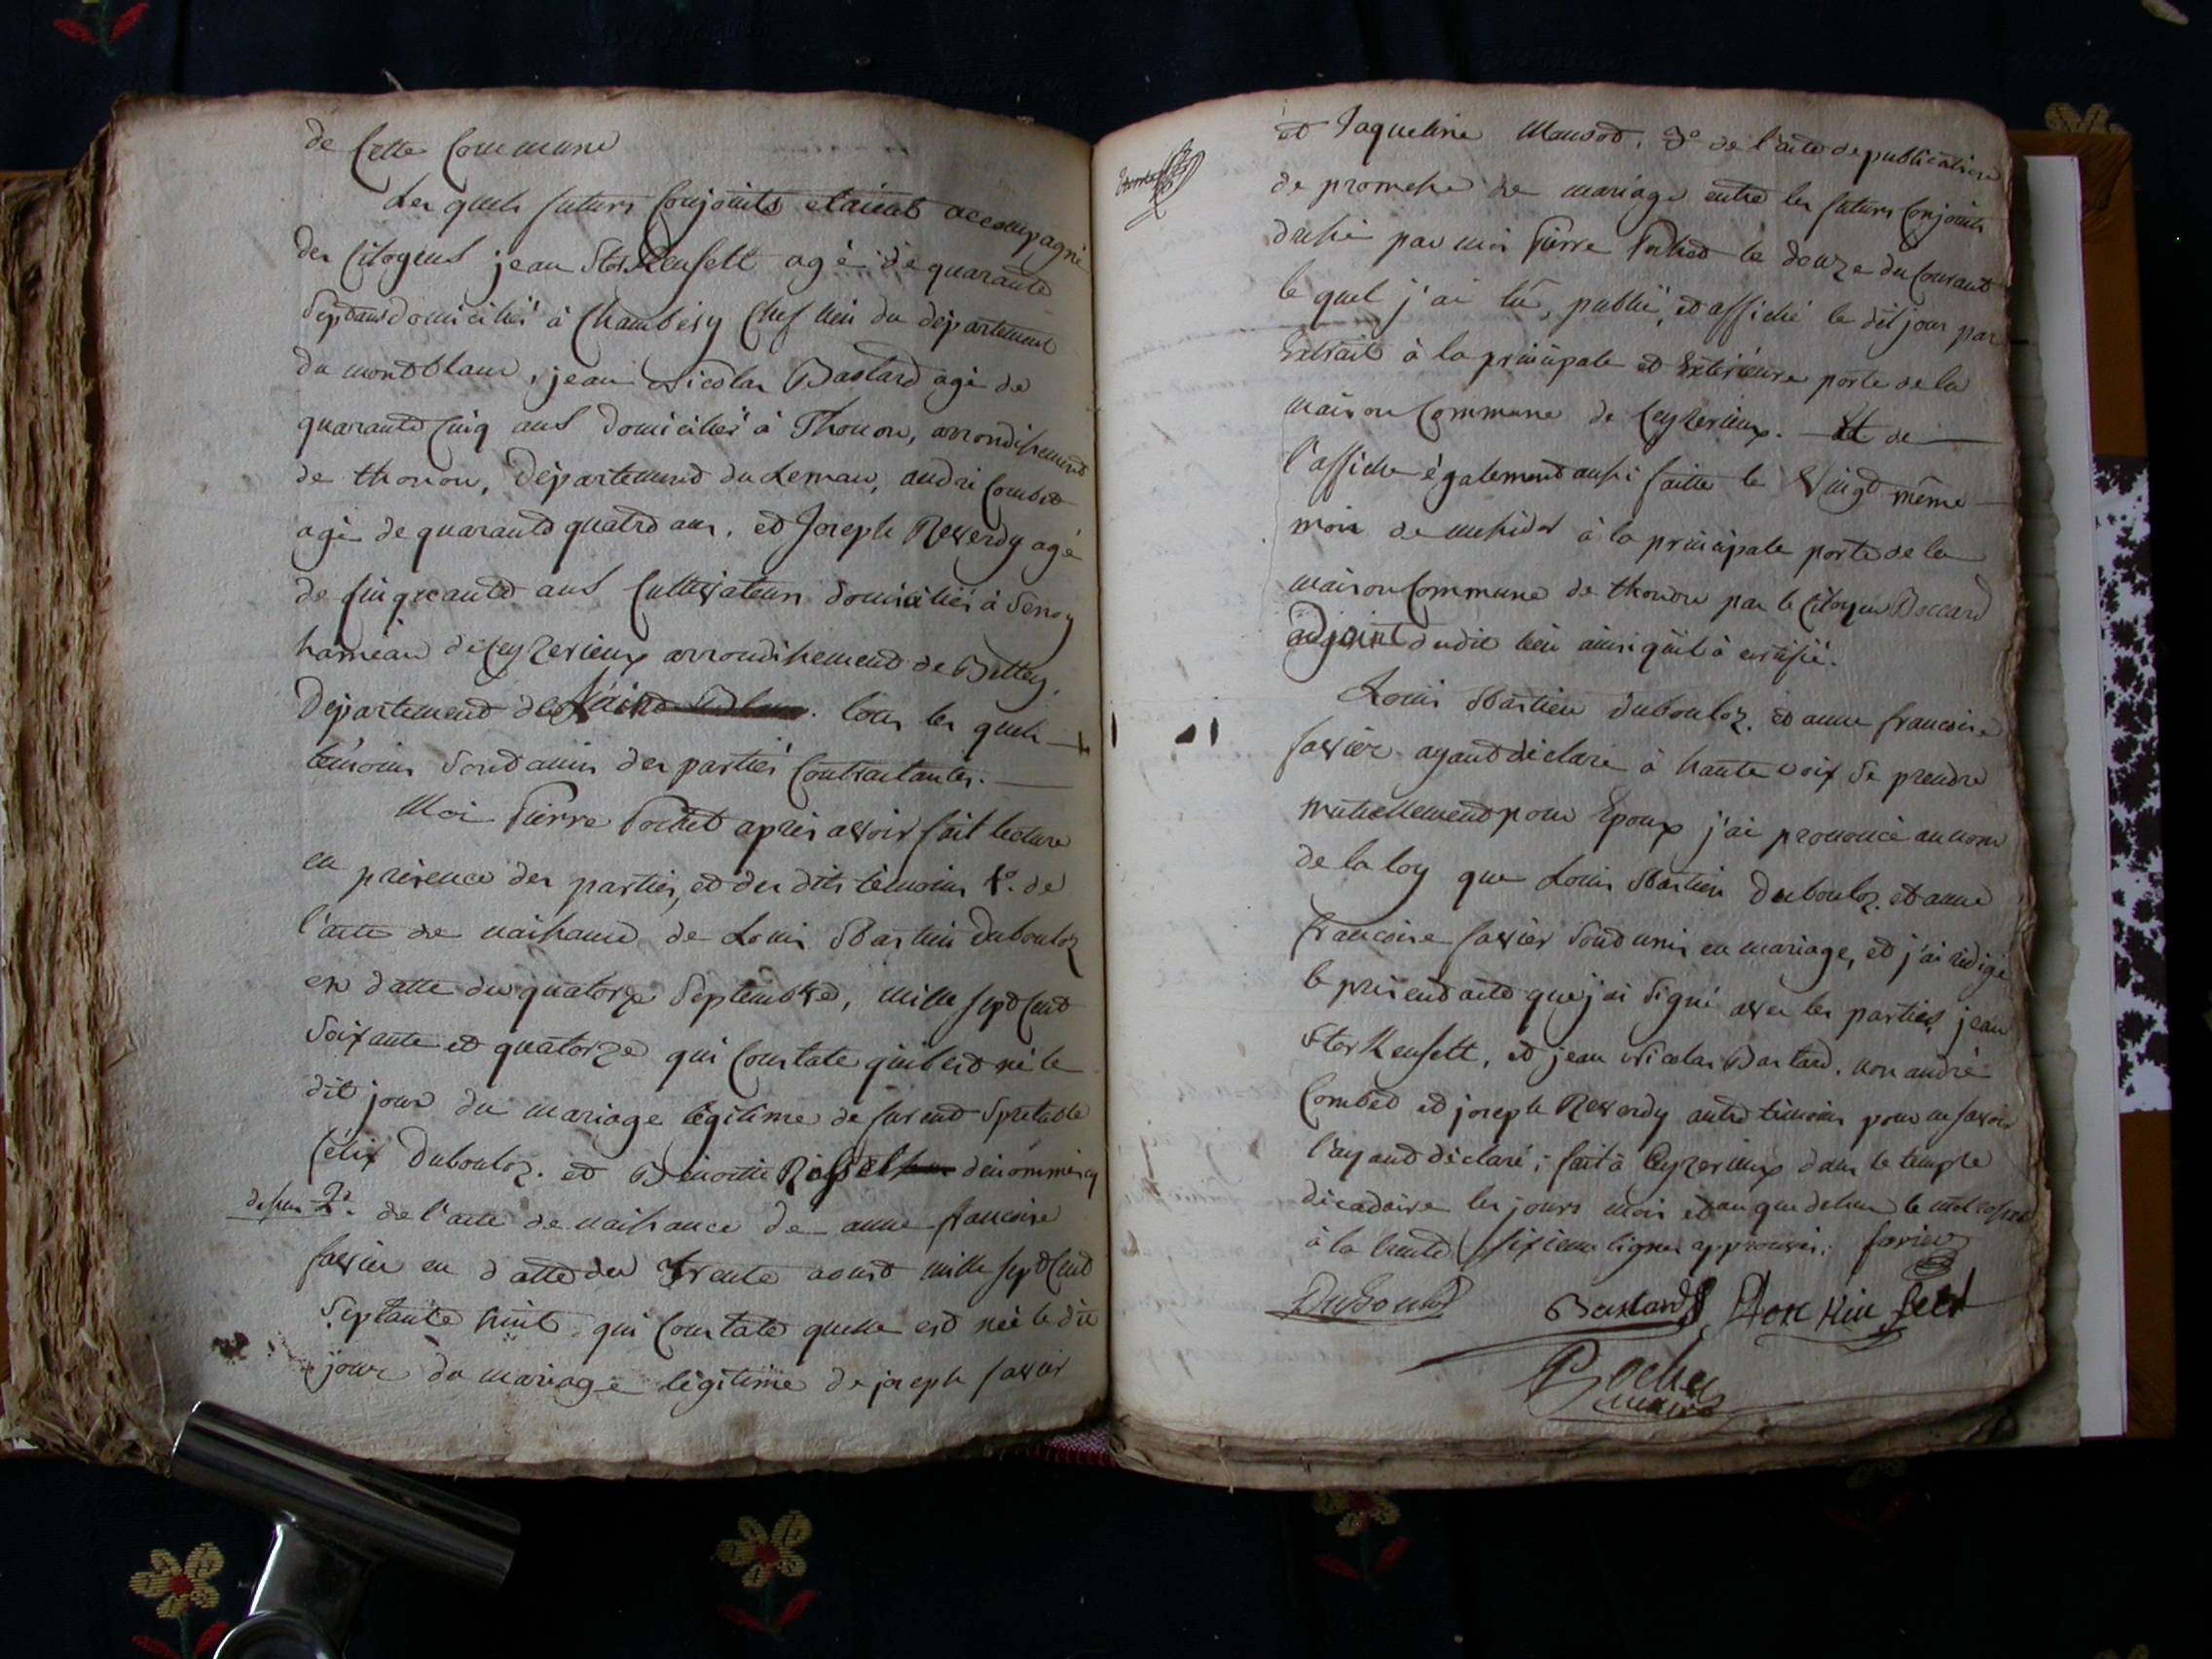 de Cette Commune
Les quels futurs Conjoints etaient accompagné
des Citoyens jean Storkenfelt agé de quarante
Sept ans domicilié à Chambéry Chef lieu du département
du mont blanc, jean Nicolas Bastard agé de
quarante Cinq ans domicilié à Thonon, arrondissement
de thonon, Département du Leman, andré Combet
agé de quarante quatre ans, et Joseph Reverdy agé
de Cinquante ans Cultivateurs domiciliés à
hameau de Ceyzerieux arrondissement de Belley,
Département de l'aind tous les quels
témoins Sont amis des partiés Contractantes.
Moi Pierre Pochet après avoir fait lecture
en présence des parties, et des dits témoins 1°. de
l'acte de naissance de Louis Bastien Dubouloz
en datte du quatorze Septembre, mille sept Cent
Soixante et quatorze qui Constate qu'il est né le
dit jour du mariage légitime de Spectable
félix Dubouloz. et dénommés cy
dessus 2°. de l'acte de naissance de anne francoise
favier en datte du trente aoust mille sept Cent
Septante huit, qui Constate quelle est née le dit
jour du mariage légitime de joseph favier
et Jaqueline 3° de l'acte de publication
de promesse de mariage entre les futurs Conjoints
dressé par moi Pierre Pochet le douze du Courant
le quel j'ai lû, publié, et affiché le dit jour par
Extrait à la principale et Extérieure porte de la
maison Commune de Ceyzerieux. Et de
l'affiche également aussi faitte le Vingt même
mois de messidor à la principale porte de la
maison Commune de thonon par le Citoyen Boccard
adjoint dudit lieu ainsi qu'il à certifié.
Louis Bastien dubouloz. et anne francoise
favier ayant déclaré à haute voix Se prendre
mutuellement pour Epoux j'ai prononcé au nom
de la loy que Louis Bastien Dubouloz. et anne
francoise favier Sont unis en mariage, et j'ai rédigé
le présent acte que j'ai Signé avec les parties, jean
Storkenfelt, et jean Nicolas Bastard. non andré
Combet et joseph Reverdy autre témoins pour ne savoir
l'ayant déclaré; fait à Ceyzerieux dans le temple
décadaire les jours mois et an que dessus le mot
à la trente sixieme ligne approuvés. favier
Dubouloz Bastard Storkinfelt
Pochet
maire